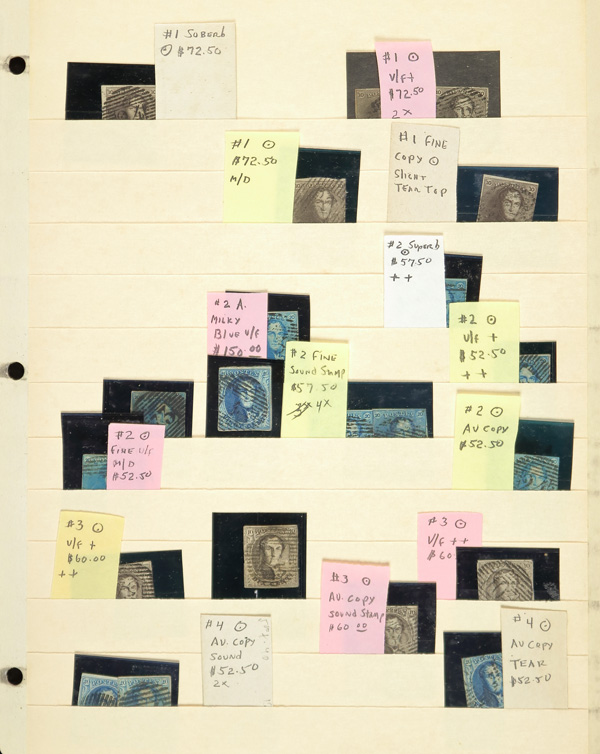 #1 Superb
⊙ $72.50
#1 ⊙
V/F+
$72.50
2x
#1 ⊙
$72.50
M/D
#1 FINE
COPY ⊙
SLIGHT
TEAR TOP
#2 Superb
⊙
$57.50
++
#2 A.
MILKY
Blue V/F
$150.00
#2 ⊙
V/F +
$52.50
++
#2 FINE
Sound Stamp
$57.50
4x
#2 ⊙
AV COPY
$52.50
#2 ⊙
FINE V/F
M/D
$52.50
#3 ⊙
V/F +
$60.00
++
#3 ⊙
V/F ++
$60
#3 ⊙
AV. COPY
Sound Stamp
$60 00
#4 ⊙
AV. COPY
SOUND
$52.50
2x
#4 ⊙
AV COPY
TEAR
$52.50